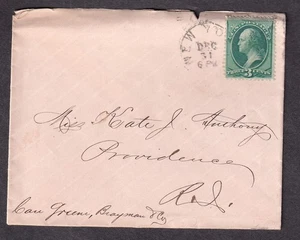 NEW YO
DEC
31
6 PM
3
Miss Kate J. Anthony
Providence
R.I.
Care Greene, Brayman & Co